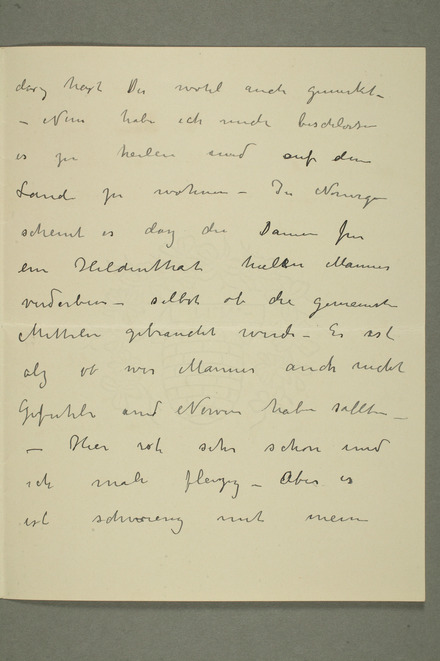 daß hast Du wohl auch gemerkt –
– Nun habe ich mich beschlossen
es zu heilen und auf dem
Land zu wohnen – In Norwegen
scheint es daß die Damen für
ein Heldenthat halten Männer
verderben – selbst ob die gemeinste
Mitteln gebraucht werde – Es ist
alß ob wir Männer auch nicht
Gefühle und Nerven habe sollten –
– Hier ist sehr schön und
ich male fleizig – Aber es
ist schwierig mit mein